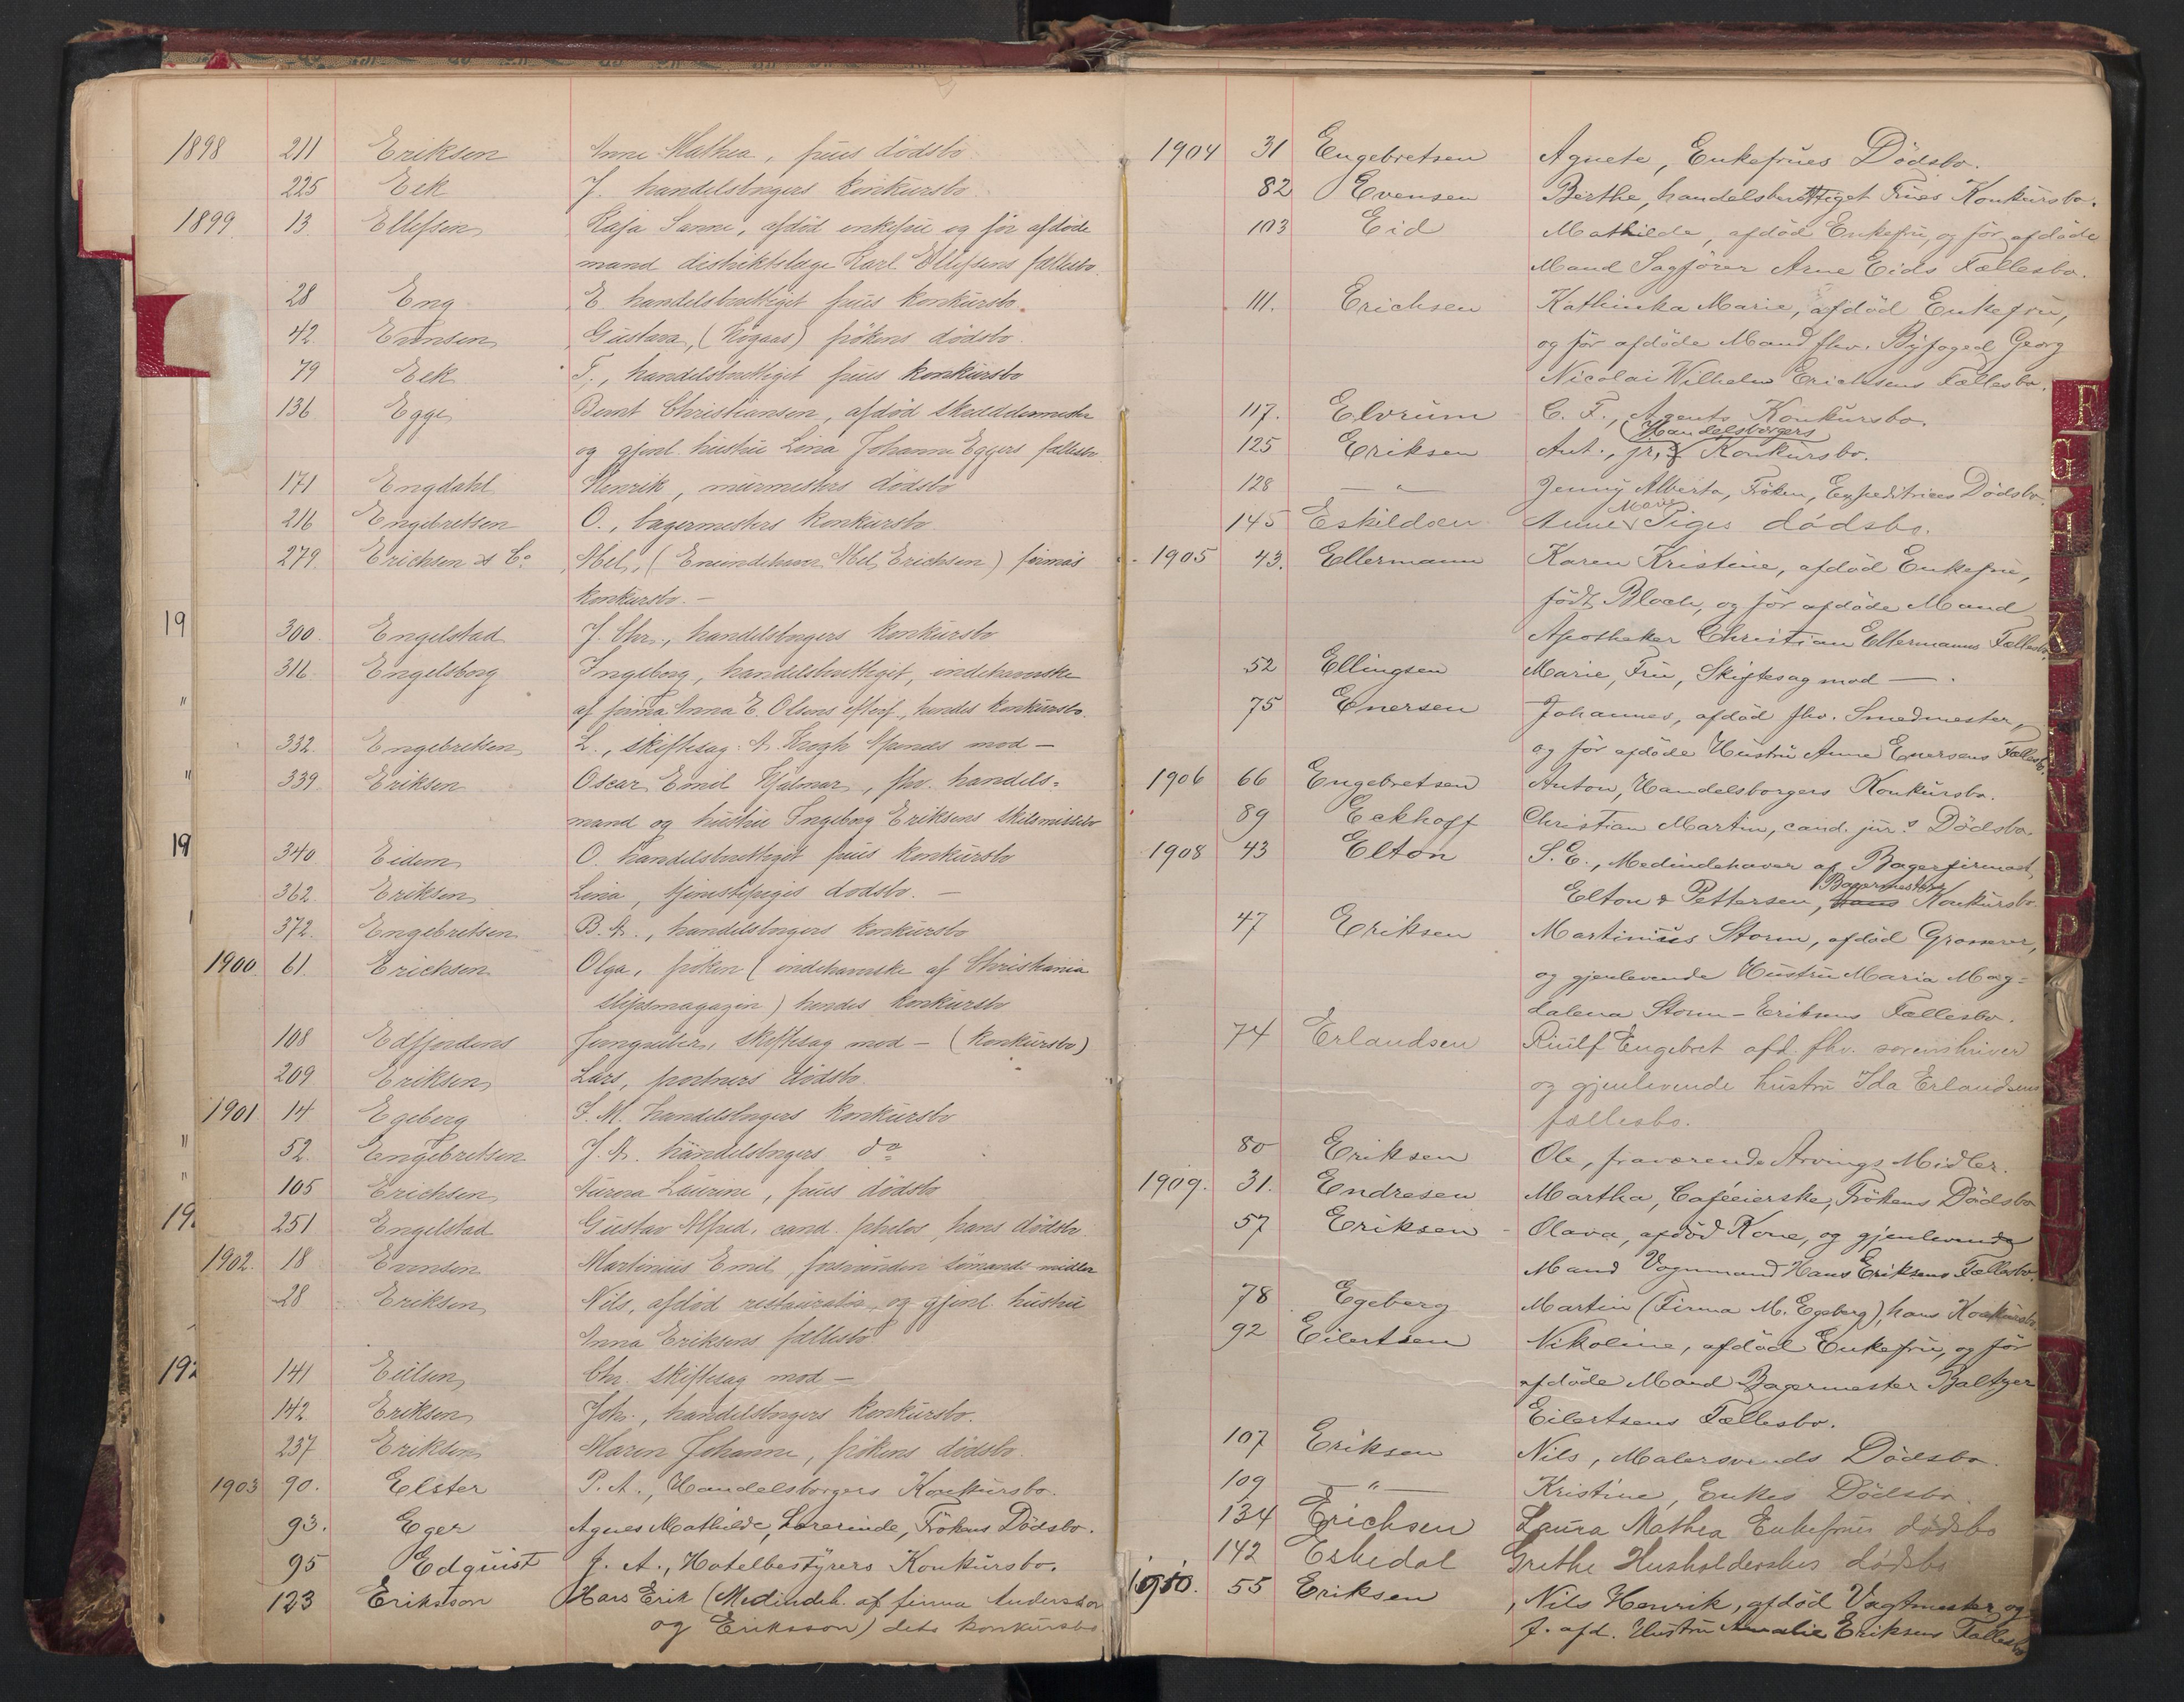 1898 211 Eriksen Anne Mathea, frues dödsbo
225 Eek J. handelsborgers konkursbo
1899 13. Ellefsen Kaja Sanne, afdöd enkefru og för afdöde
mand distriktslæge Karl Ellefsens fællesbo.
28 Eng E. handelsberettiget frues konkursbo.
42. Evensen Gustava, (Høgaas) frökens dödsbo.
79 Eek T., handelsberettiget frues konkursbo
136 Egge Bernt Christiansen, afdöd skræddermester
og gjenl. hustru Lina Johanne Egges fællesbo
171 Engdahl Henrik, murmesters dödsbo
216 Engebretsen O., bagermesters konkursbo
279. Erichsen & Co Abel, (Eneindehaver Abel Erichsen) firmas
konkursbo. —
19 300. Engelstad J. Chr., handelsborgers konkursbo
316. Engelsborg Ingeborg, handelsberettiget, indehaverske
" af firma Anna E. Olsens efterf., hendes konkursbo.
332. Engebretsen L., skiftesag: A. Krogh Afsends mod —
" 339. Eriksen Oscar Emil Hjalmar, fhv. handels=
mand og hustru Ingeborg Eriksens skilsmissebo
19 340 Eidem O. handelsberettiget frues konkursbo
362. Eriksen Lina, tjenestepiges dødsbo. —
372. Engebretsen B. A., handelsborgers konkursbo
1900. 61. Erichsen Olga, fröken (indehaverske af Christiania
slipsmagazin) hendes konkursbo
108 Edfjordens skiftesag mod — (konkursbo)
209 Eriksen Lars, portners dödsbo.
1901. 14 Egeberg F. M. handelsborgers konkursbo
" 52. Engebretsen J. A. handelsborgers do
" 105 Erichsen Aurora Laurine, frues dödsbo
19 251 Engelstad Gustav Alfred, cand. philos, hans dödsbo
1902. 18 Evensen Martinius Emil, forsvunden sömands midler
28 Eriksen Nils, afdöd restauratör og gjenl. hustru
Anna Eriksens fællesbo
192 141 Eilsen Chr. skiftesag mod —
142. Eriksen Joh., handelsborgers konkursbo.
237 Eriksen Maren Johanne, frökens dödsbo.
1903 90. Elster P. A., Handelsborgers Konkursbo.
93. Eger Agnes Mathilde, Lærerinde, Frökens Dödsbo.
95 Edquist J. A., Hotelbestyrers Konkursbo.
123 Eriksson Hans Erik (Medindeh. af firma Andersson
og Eriksson) dets konkursbo
1904 31 Engebretsen Agnete, Enkefrues Dödsbo.
82 Evensen Berthe, handelsberettiget Frues Konkursbo.
103 Eid Mathilde, afdöd Enkefru, og för afdöde
Mand Sagförer Arne Eids Fællesbo.
111. Erichsen Kathinka Marie, afdöd Enkefru,
og för afdöde Mand fhv. Byfoged Georg
Nicolai Wilhelm Erichsens Fællesbo.
117. Elvrum C. F., Agents Konkursbo.
Handelsborgers
125 Eriksen Ant., jr, Konkursbo.
128 — " — Jenny Alberta, Fröken, Expeditrices Dödsbo
Marie
145 Eskildsen Anne Piges dödsbo.
1905 43. Ellermann Karen Kristine, afdöd Enkefru,
födt Bloch, og för afdöde Mand
Apotheker Christian Ellermanns Fællesbo.
52 Ellingsen Marie, Fru, Skiftesag mod — .
75 Enersen Johannes, afdöd fhv. Smedmester,
og för afdöde Hustru Anne Enersens Fællesbo.
1906 66 Engebretsen Anton, Handelsborgers Konkursbo.
89 Eckhoff Christian Martin, cand. jur.s Dödsbo
1908 43 Elton S. E., Medindehaver af Bagerfirmaet
Bagermester
Elton & Pettersen, hans Konkursbo
47 Eriksen Martinius Storm, afdöd Grosserer,
og gjenlevende Hustru Maria Mag=
dalena Storm-Eriksens Fællesbo.
74 Erlandsen Riulf Engebret afd. fhv. sorenskriver
og gjenlevende hustru Ida Erlandsens
fællesbo.
80 Eriksen Ole, fraværende Arvings Midler.
1909. 31. Endresen Martha, Caféeierske, Frökens Dödsbo
57 Eriksen Olava, afdöd Kone, og gjenlevende
Mand Vognmand Hans Eriksens Fællesbo.
78 Egeberg Martin (Firma M. Egeberg), hans Konkursbo
92 Eilertsen Nikoline, afdöd Enkefru, og för
afdöde Mand Bagermester Baltzer
Eilertsens Fællesbo.
107 Eriksen Nils, Malersvends Dödsbo.
109 — " — Kristine, Enkes Dödsbo.
134 Erichsen Laura Mathea Enkefrues dödsbo
142 Eskedal Grethe Husholderskes dödsbo
1910. 55 Eriksen Nils Henrik, afdöd Vagtmester og
f. afd. Hustru Amalie Eriksens Fællesbo
F
G
H
K
L
N
O
P
U
V
X
Y